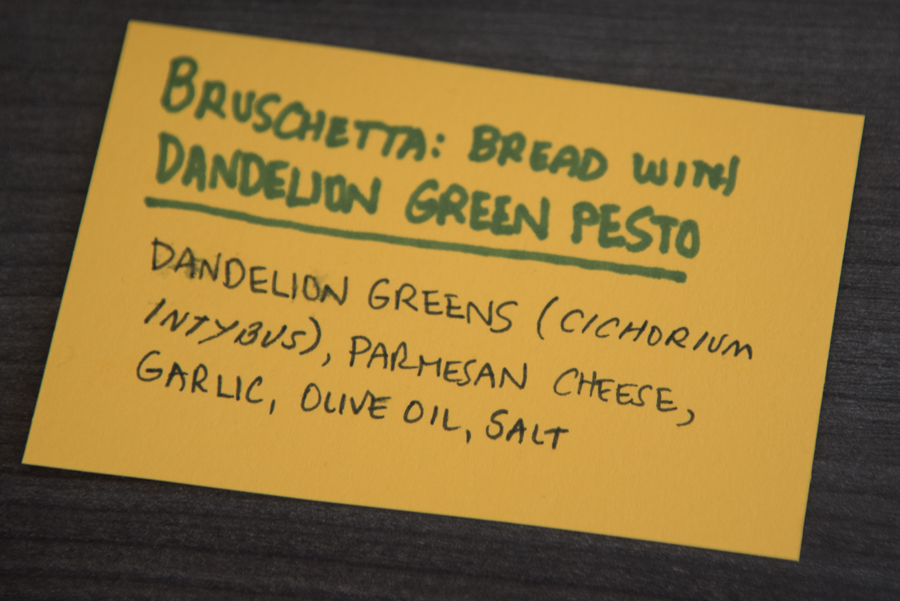 BRUSCHETTA: BREAD WITH
DANDELION GREEN PESTO
DANDELION GREENS (CICHORIUM
INTYBUS), PARMESAN CHEESE,
GARLIC, OLIVE OIL, SALT